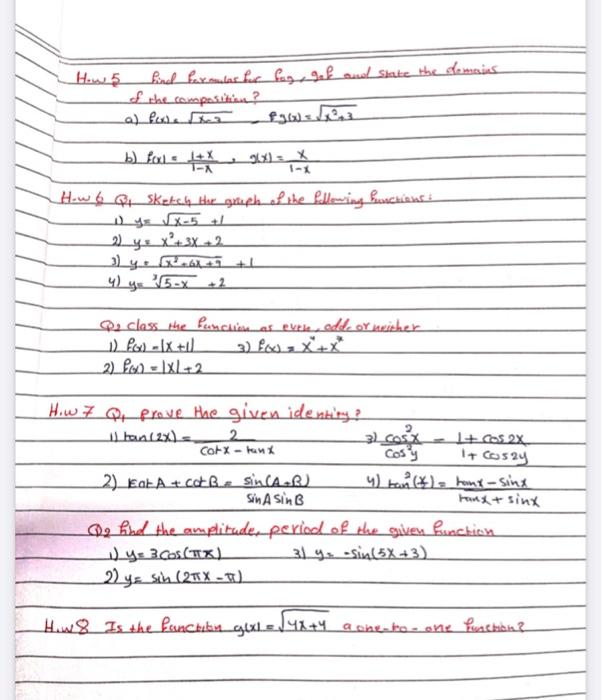 H.w 5 find formulas for fog, gof and state the domains
of the composition?
a) f(x) = √x-3 , g(x) = √x²+3
b) f(x) = 1+x/1-x , g(x) = x/1-x
H.w 6 Q1 sketch the graph of the following functions:
1) y= √x-5 +1
2) y= x²+3x+2
3) y= √x²+6x+9 +1
4) y= ³√5-x +2
Q2 class the function as even, odd, or neither
1) f(x) = |x+1| 3) f(x) =
2) f(x) = |x|+2
H.w 7 Q1 prove the given identity?
1) tan(2x) = 2/cotx - tanx 3) cos²x/cos²y = 1+cos2x/1+cos2y
2) cotA + cotB = sin(A+B)/sinA sinB 4) tan²(x/2) = tanx - sinx/tanx + sinx
Q2 find the amplitude, period of the given function
1) y= 3cos(πx) 3) y= -sin(5x+3)
2) y= sin(2πx-π)
H.w 8 Is the function g(x) = √4x+4 a one-to-one function?